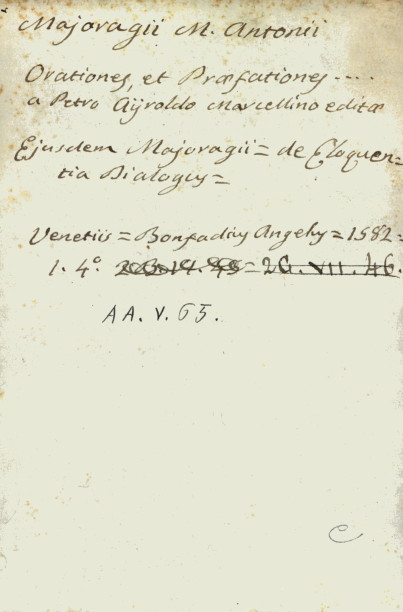 Majoragii M. Antonii
Orationes, et Præfationes ....
a Petro Aÿroldo Marcellino editæ
Ejusdem Majoragii = de Eloquen=
tia Dialogus =
Venetiis = Bonfadius Angelus = 1582 =
1. 4º. 2G. VII. 46.
AA. V. 65.
C